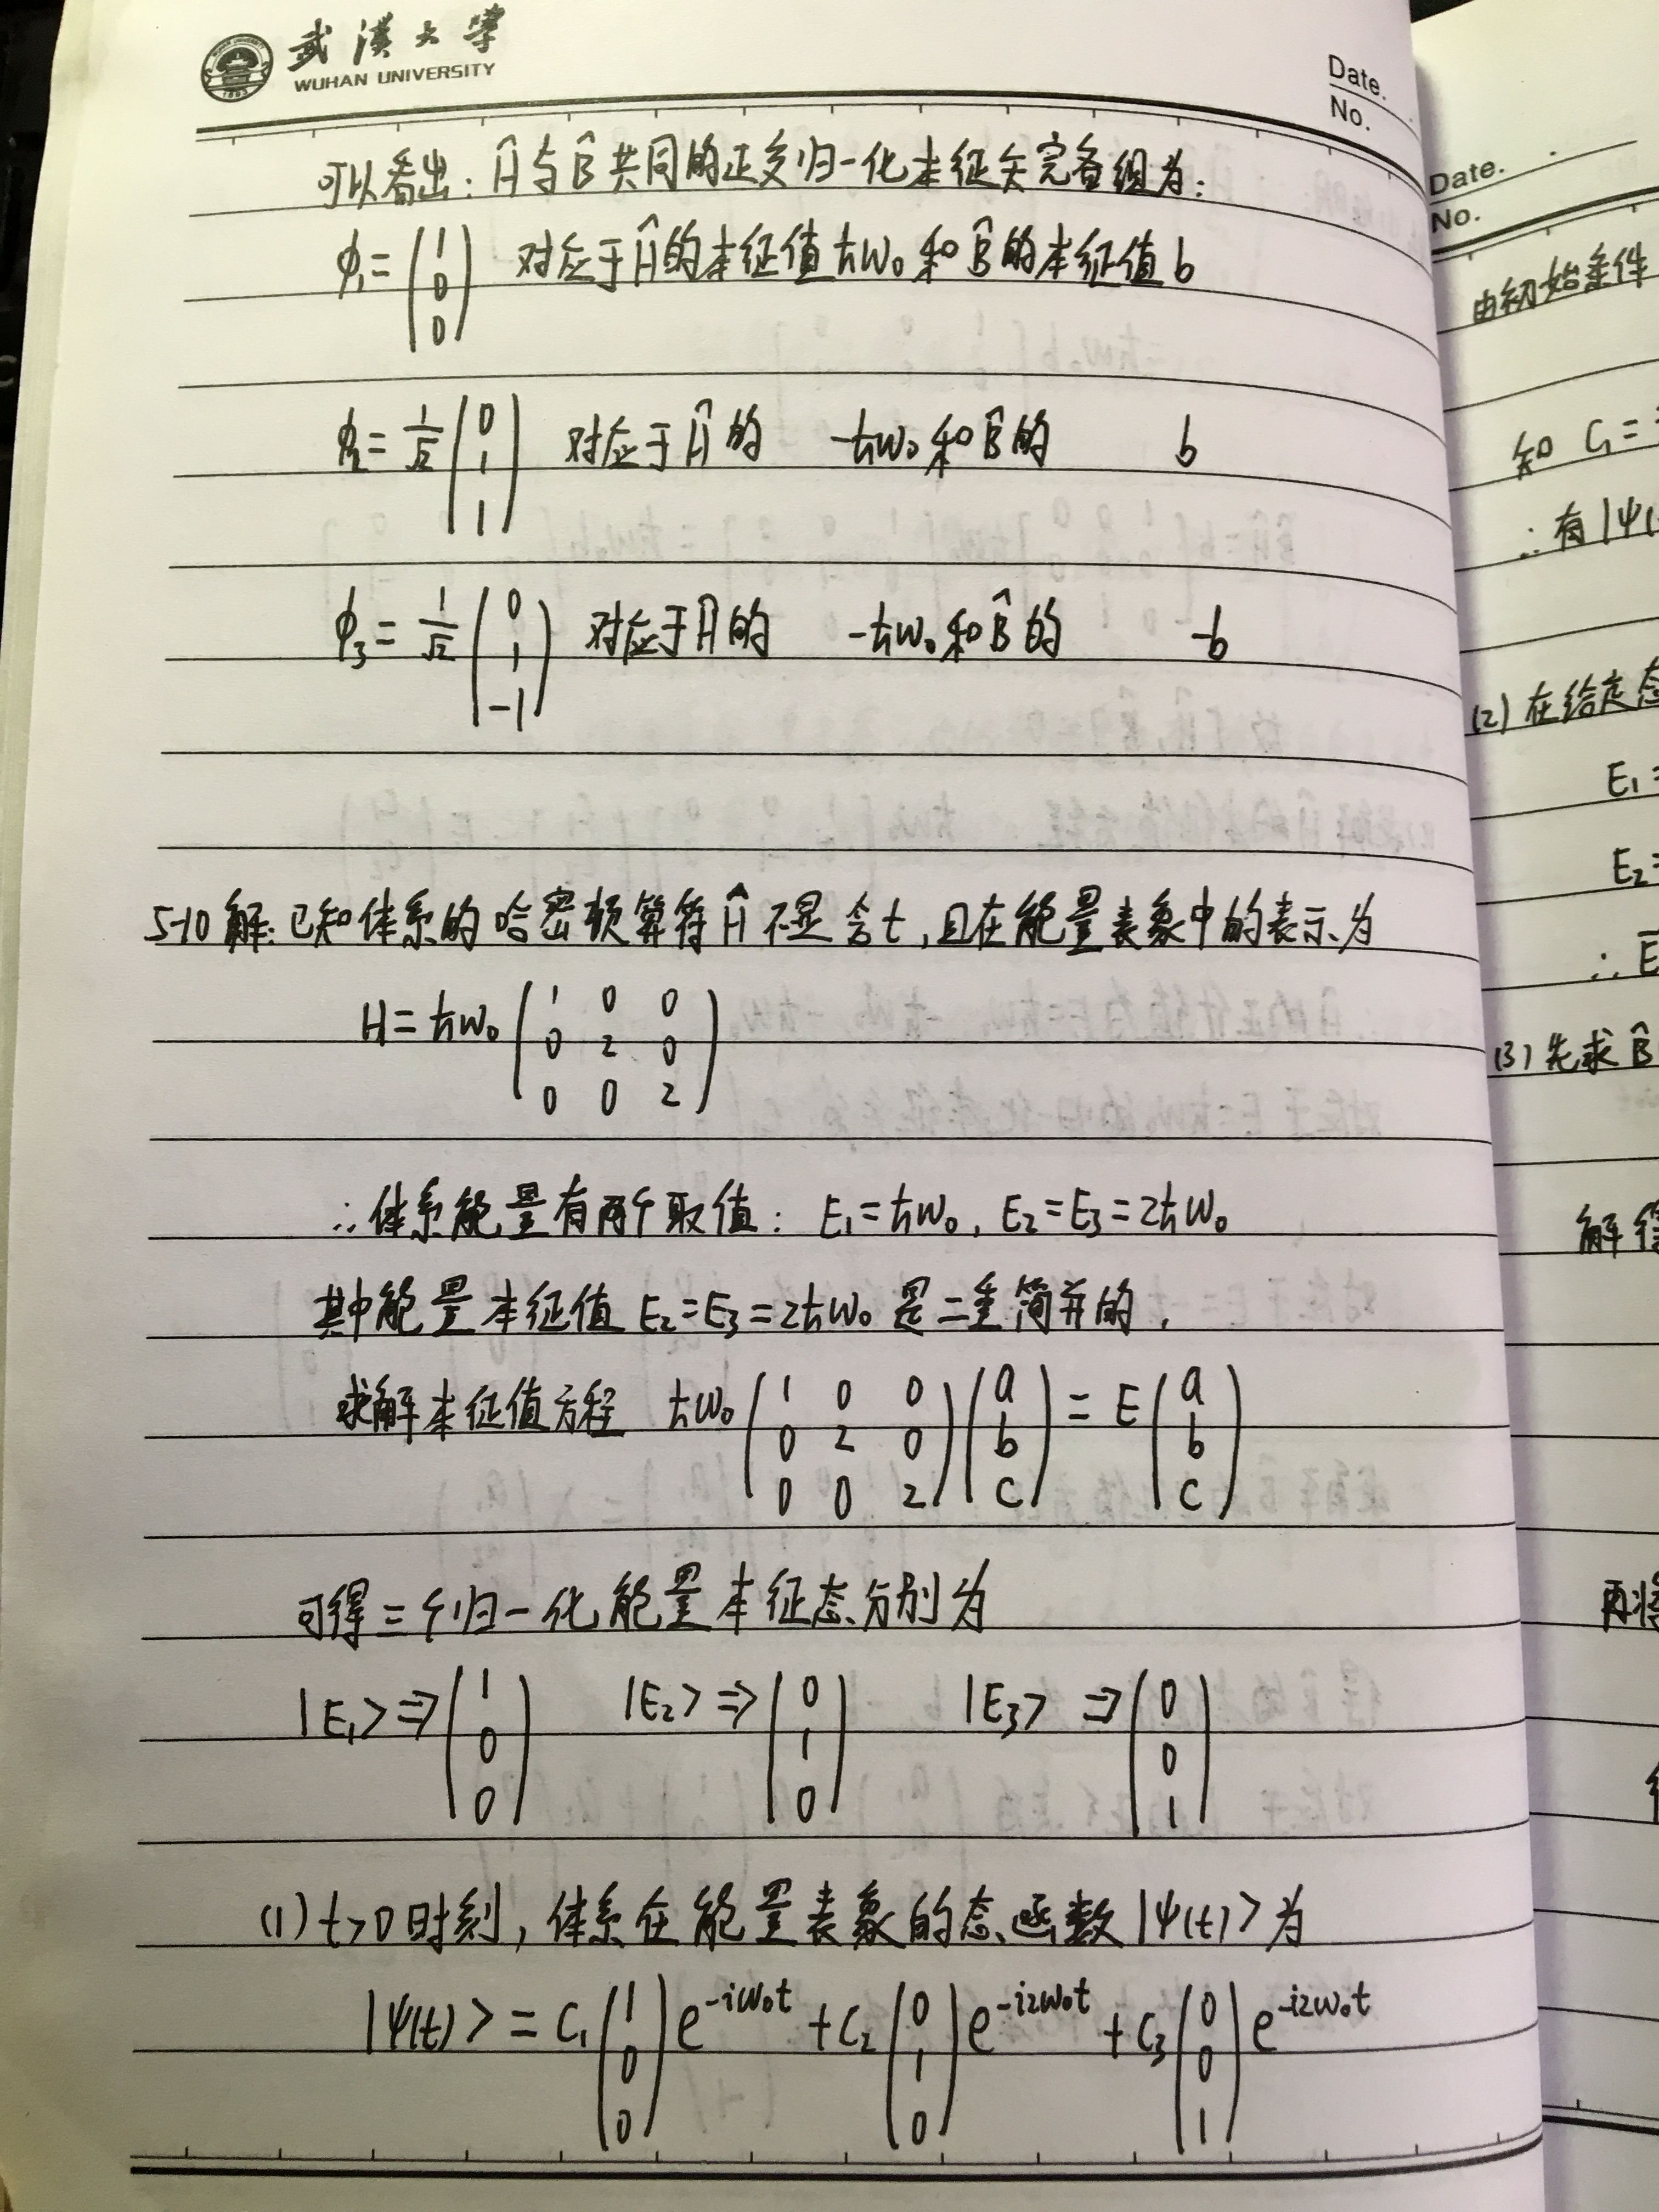 武漢大學
WUHAN UNIVERSITY
Date.
No.
可以看出: Ĥ与B̂共同的正交归一化本征矢完备组为:
ϕ₁ = (1 0 0) 对应于Ĥ的本征值ħω₀和B̂的本征值b
ϕ₂ = 1/√2 (0 1 1) 对应于Ĥ的 -ħω₀和B̂的 b
ϕ₃ = 1/√2 (0 1 -1) 对应于Ĥ的 -ħω₀和B̂的 -b
5-10 解: 已知体系的哈密顿算符Ĥ不显含t, 且在能量表象中的表示为
H = ħω₀ (1 0 0
0 2 0
0 0 2)
∴体系能量有两个取值: E₁=ħω₀, E₂=E₃=2ħω₀
其中能量本征值 E₂=E₃=2ħω₀ 是二重简并的,
求解本征值方程 ħω₀ (1 0 0
0 2 0
0 0 2) (a b c) = E (a b c)
可得三个归一化能量本征态分别为
|E₁> ⇒ (1 0 0) |E₂> ⇒ (0 1 0) |E₃> ⇒ (0 0 1)
(1) t>0时刻, 体系在能量表象的态函数|ψ(t)>为
|ψ(t)> = C₁ (1 0 0) e^{-iω₀t} + C₂ (0 1 0) e^{-i2ω₀t} + C₃ (0 0 1) e^{-i2ω₀t}
Date.
No.
由初始条件
知 C₁ =
∴有|ψ(
(2) 在给定态
E₁ =
E₂ =
∴ E
(3) 先求B̂
解得
再将